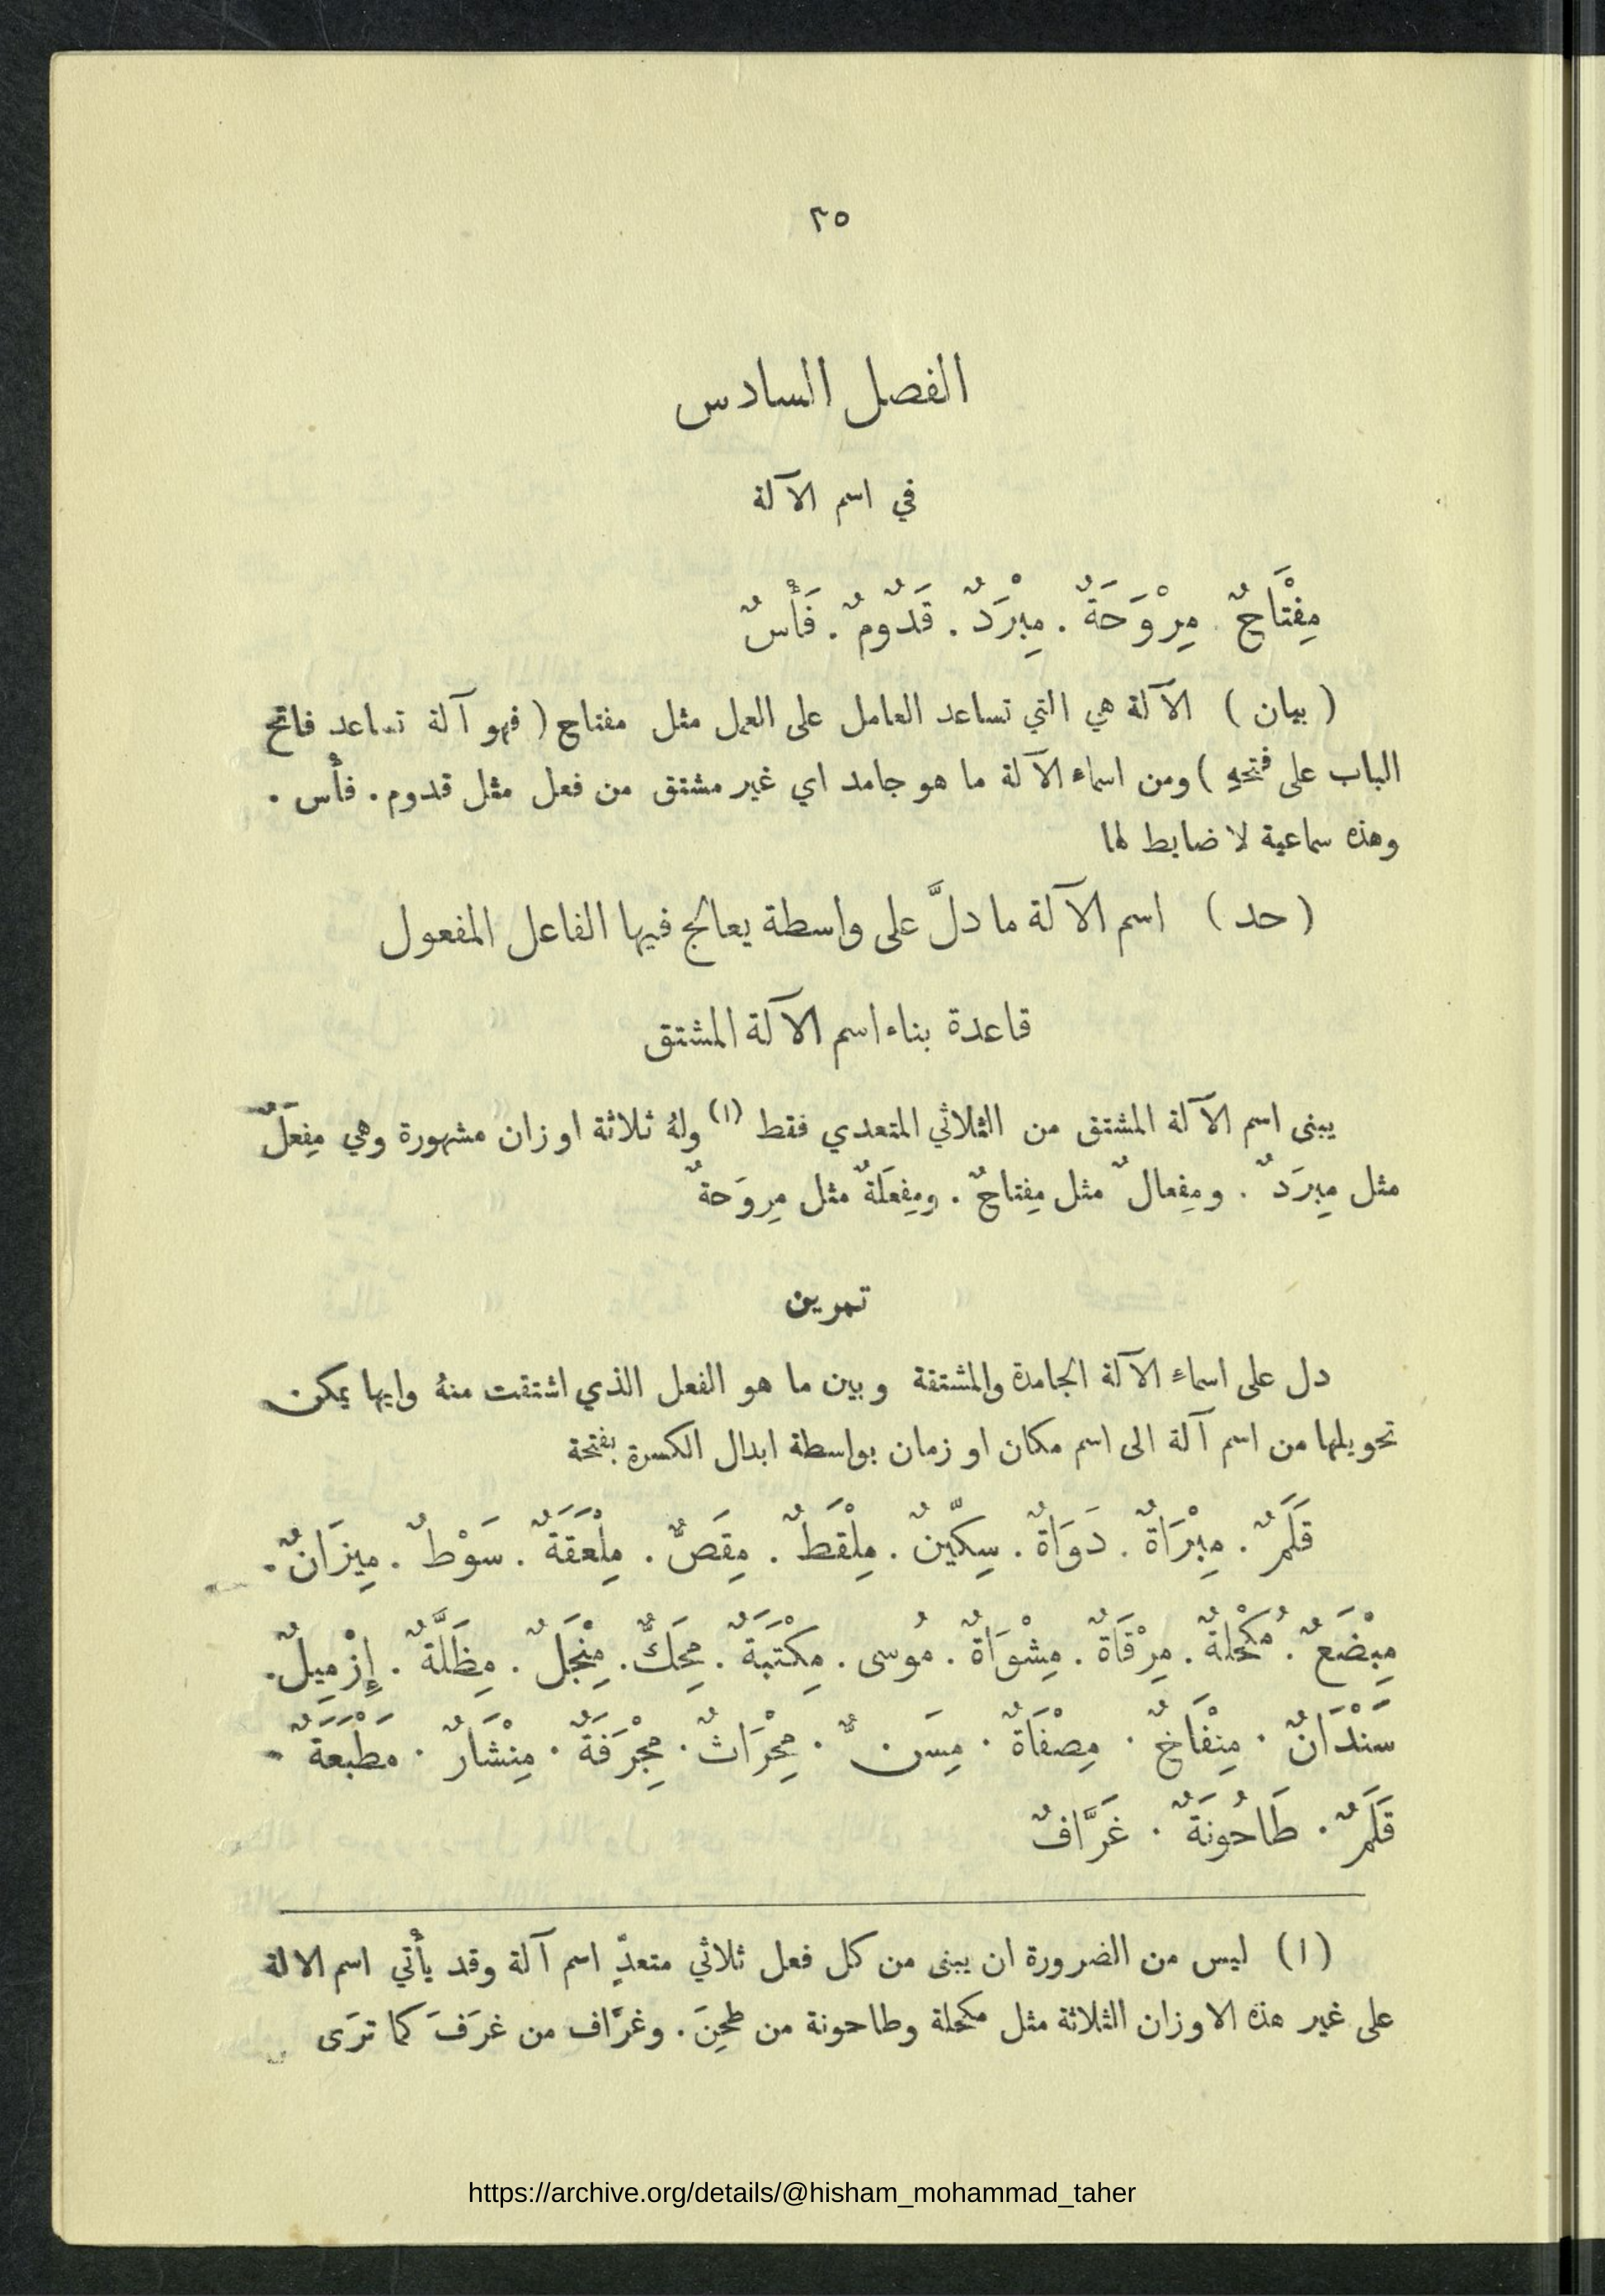 ٣٥
الفصل السادس
في اسم الآلة
مِفْتَاحٌ . مِرْوَحَةٌ . مِبْرَدٌ . قَدُومٌ . فَأْسٌ
( بيان ) الآلة هي التي تساعد العامل على العمل مثل مفتاح ( فهو آلة تساعد فاتح
الباب على فتحهِ ) ومن اسماء الآلة ما هو جامد اي غير مشتق من فعل مثل قدوم . فأْس .
وهذه سماعية لا ضابط لها
( حد ) اسم الآلة ما دلَّ على واسطة يعالج فيها الفاعل المفعول
قاعدة بناء اسم الآلة المشتق
يبنى اسم الآلة المشتق من الثلاثي المتعدي فقط (١) ولهُ ثلاثة اوزان مشهورة وهي مِفعَلٌ
مثل مِبرَدٌ . ومِفعالٌ مثل مِفتاحٌ . ومِفعَلَةٌ مثل مِروَحةٌ
تمرين
دل على اسماءِ الآلة الجامدة والمشتقة وبين ما هو الفعل الذي اشتقت منهُ وايها يمكن
تحويلها من اسم آلة الى اسم مكان او زمان بواسطة ابدال الكسرة بفتحة
قَلَمٌ . مِبْرَاةٌ . دَوَاةٌ . سِكِّينٌ . مِلْقَطٌ . مِقَصٌّ . مِلْعَقَةٌ . سَوْطٌ . مِيزَانٌ .
مِبْضَعٌ . مُكْحُلَةٌ . مِرْقَاةٌ . مِشْوَاةٌ . مُوسى . مِكْتَبَةٌ . مِحَكٌّ . مِنْجَلٌ . مِظَلَّةٌ . إِزْمِيلٌ .
سَنْدَانٌ . مِنْفَاخٌ . مِصْفَاةٌ . مِسَنٌّ . مِحْرَاثٌ . مِجْرَفَةٌ . مِنْشَارٌ . مَطْبَعَةٌ .
قَلَمٌ . طَاحُونَةٌ . غَرَّافٌ
(١) ليس من الضرورة ان يبنى من كل فعل ثلاثي متعدٍّ اسم آلة وقد يأْتي اسم الالة
على غير هذه الاوزان الثلاثة مثل مكحلة وطاحونة من طحِنَ . وغرَّاف من غرَفَ كما ترَى
https://archive.org/details/@hisham_mohammad_taher